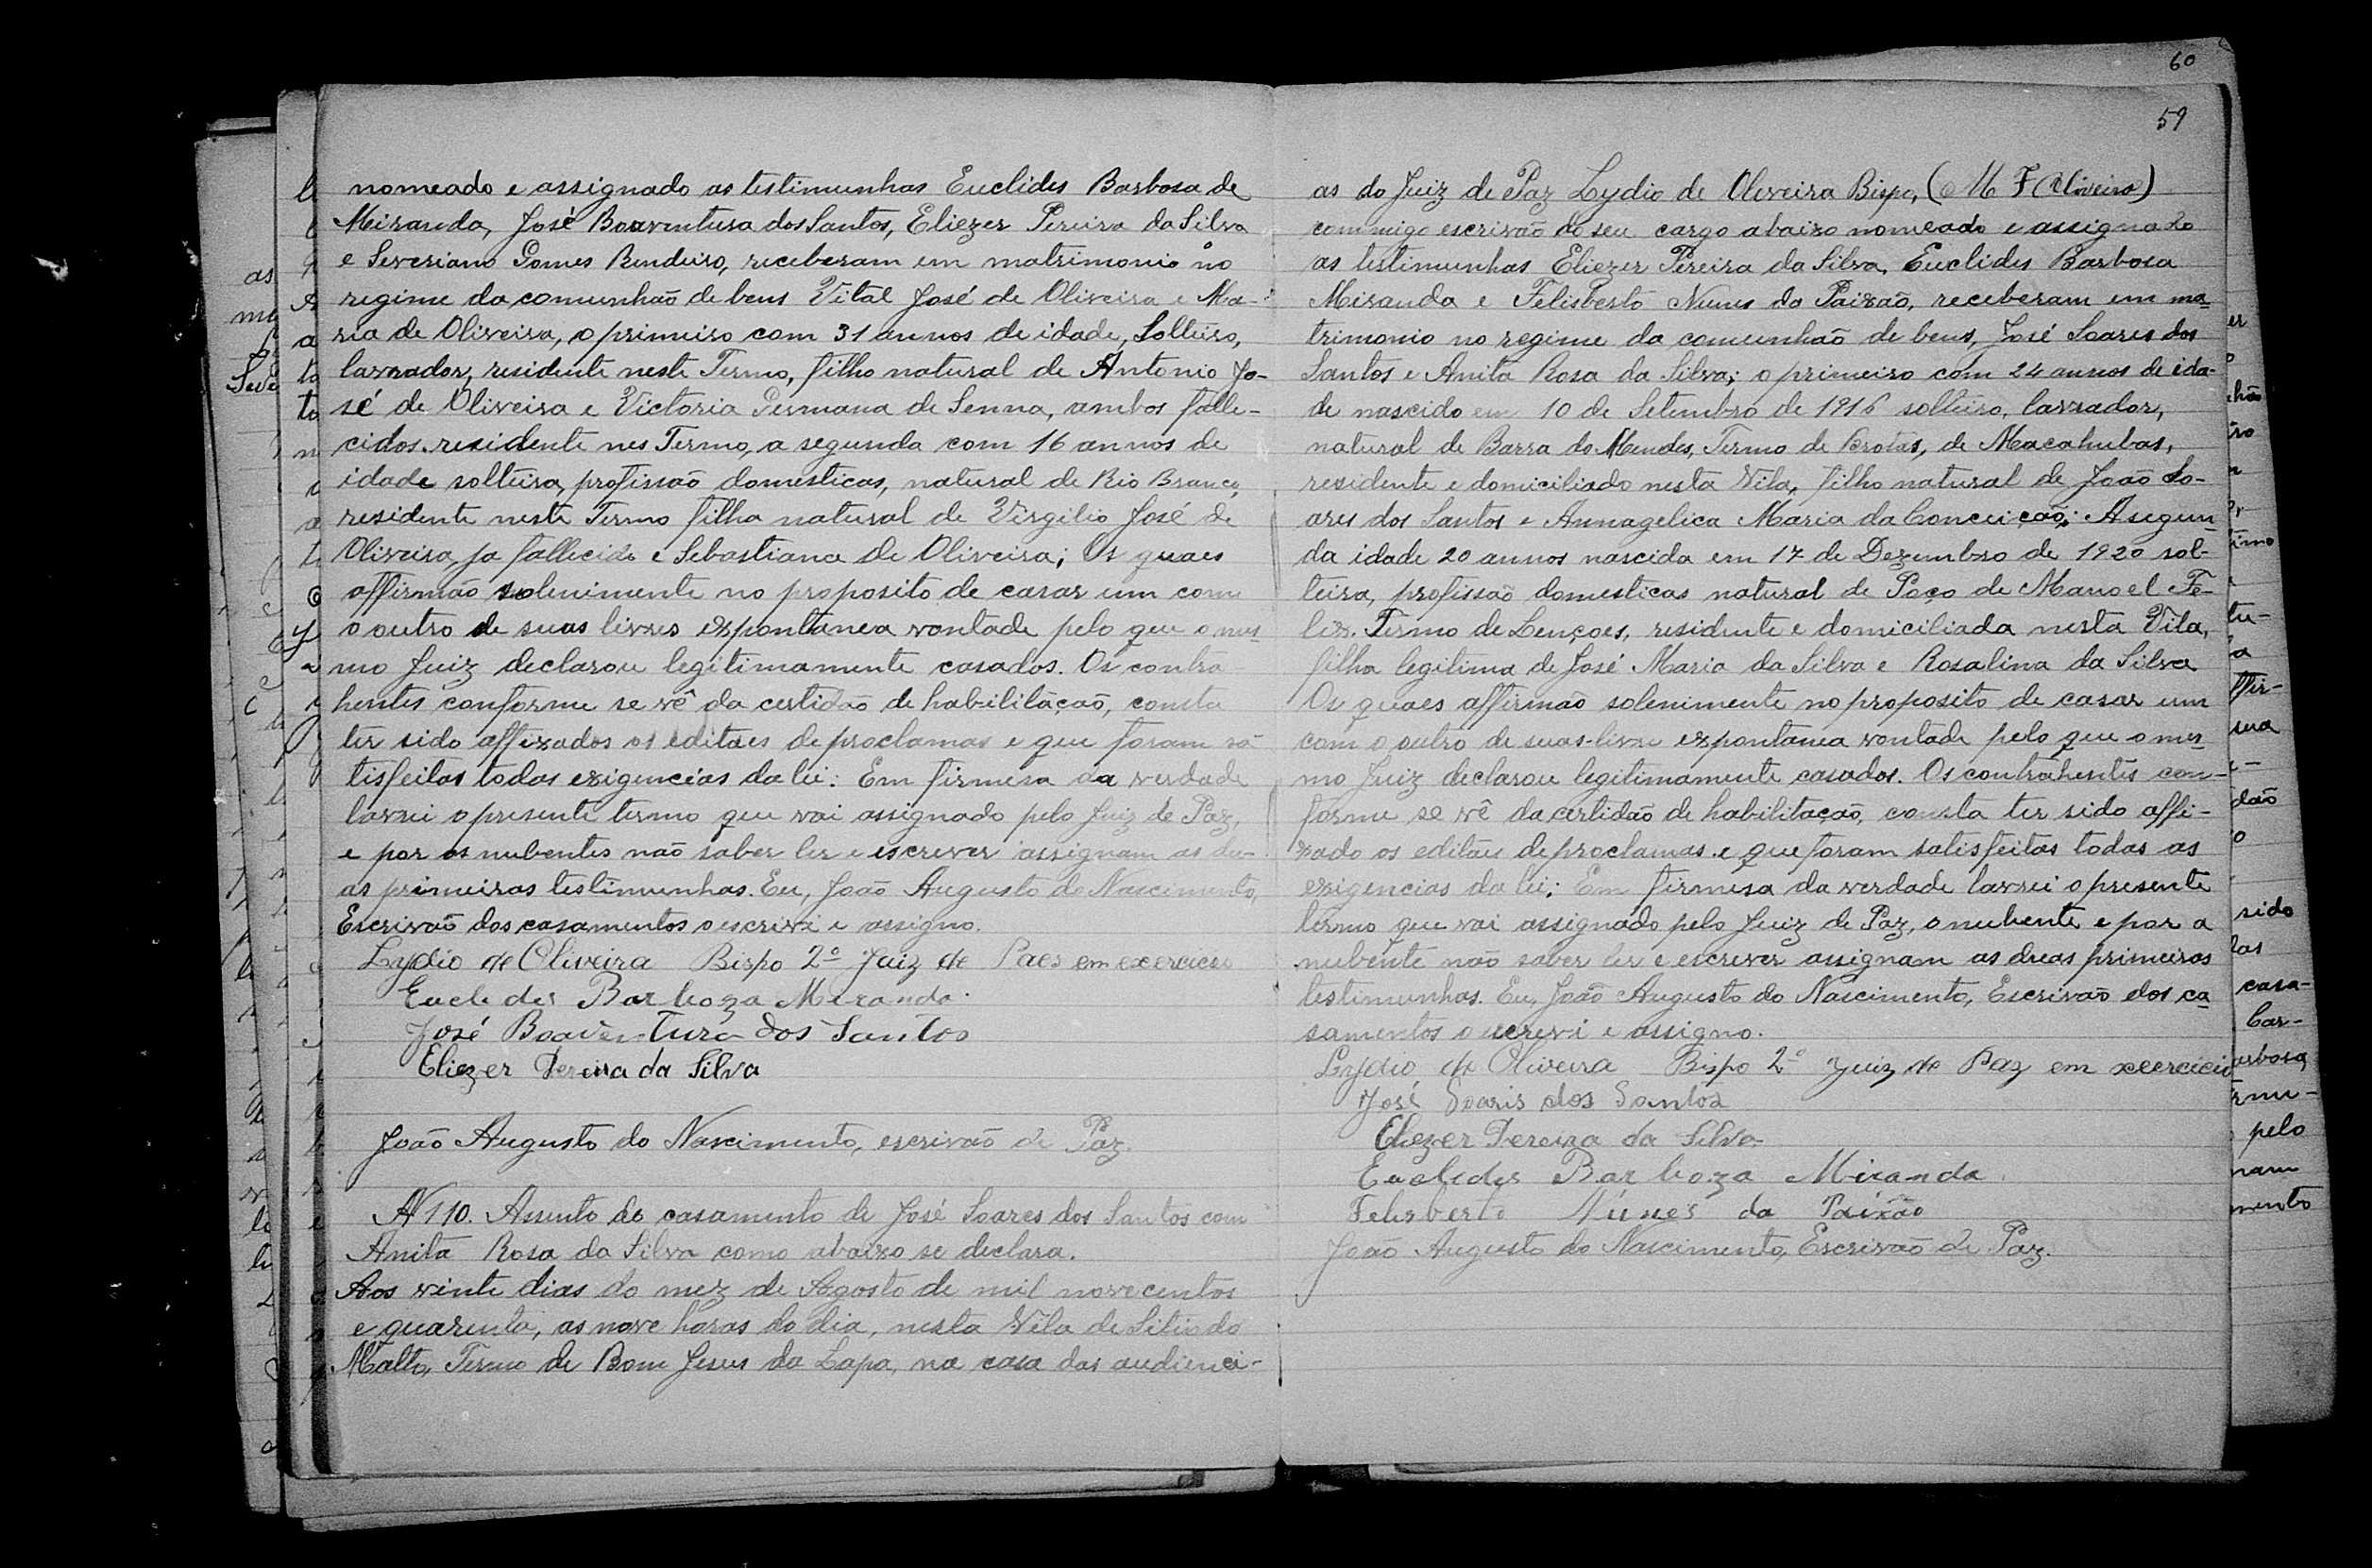 nomeado e assignado as testimunhas Euclides Barbosa de
Miranda, José Boaventura dos Santos, Eliezer Pereira da Silva
e Severiano Gomes Rendeiro, receberam em matrimonio no
regime da comunhão de bens Vital José de Oliveira e Ma-
ria de Oliveira, o primeiro com 31 annos de idade, Solteiro,
lavrador, residente neste Termo, filho natural de Antonio Jo-
sé de Oliveira e Victoria Germana de Senna, ambos falle-
cidos residente nes Termo, a segunda com 16 annos de
idade solteira, profissão domesticas, natural de Rio Branco,
residente neste Termo filha natural de Virgilio José de
Oliveira, ja fallecido e Sebastiana de Oliveira; Os quaes
affirmão solenimente no proposito de casar um com
o outro de suas livres expontanea vontade pelo que o mes
mo Juiz declarou legitimamente casados. Os contra-
hentes conforme se vê da certidão de habilitação, consta
ter sido affixados os editaes de proclamas e que foram sa-
tisfeitas todas exigencias da lei: Em firmesa da verdade
lavrei o presente termo que vai assignado pelo Juiz de Paz,
e por os nubentes não saber ler e escrever assignam as du-
as primeiras testimunhas. Eu, João Augusto do Nascimento,
Escrivão dos casamentos o escrivi e assigno.
Lydio de Oliveira Bispo 2º Juiz de Paes em exercicio
Euclides Barboza Miranda.
José Boaventura dos Santos
Eliezer Pereira da Silva
João Augusto do Nascimento, escrivão de Paz.
Nº 110. Assento do casamento de José Soares dos Santos com
Anita Rosa da Silva como abaixo se declara.
Aos vinte dias do mez de Agosto de mil novecentos
e quarenta, as nove horas do dia, nesta Vila de Sitio do
Matto, Termo de Bom Jesus da Lapa, na casa das audienci-
60
59
as do Juiz de Paz Lydio de Oliveira Bispo, (M F Oliveira)
commigo escrivão do seu cargo abaixo nomeado e assignado
as testimunhas Eliezer Pereira da Silva, Euclides Barbosa
Miranda e Felisberto Nunes da Paixão, receberam em ma-
trimonio no regime da comunhão de bens, José Soares dos
Santos e Anita Rosa da Silva; o primeiro com 24 annos de ida-
de nascido em 10 de Setembro de 1916 solteiro, lavrador,
natural de Barra do Mendes, Termo de Brotas, de Macahubas,
residente e domiciliado nesta Vila, filho natural de João So-
ares dos Santos e Annagelica Maria da Conceição: A segun-
da idade 20 annos nascida em 17 de Dezembro de 1920 sol-
teira, profissão domesticas natural de Poço de Manoel Fe-
lix. Termo de Lençoes, residente e domiciliada nesta Vila,
filha legitima de José Maria da Silva e Rosalina da Silva
Os quaes affirmão solenimente no proposito de casar um
com o outro de suas livre expontanea vontade pelo que o mes
mo Juiz declarou legitimamente casados. Os contrahentes con-
forme se vê da certidão de habilitação, consta ter sido affi-
xado os editaes de proclamas e que foram satisfeitas todas as
exigencias da lei; Em firmesa da verdade lavrei o presente
termo que vai assignado pelo Juiz de Paz, o nubente e por a
nubente não saber ler e escrever assignam as duas primeiras
testimunhas. Eu, João Augusto do Nascimento, Escrivão dos ca-
samentos o escrevi e assigno.
Lydio de Oliveira Bispo 2º Juiz de Paz em xeercicio
José Soaris dos Santos
Eliezer Pereira da Silva
Euclides Barboza Miranda.
Felisberto Núnes da Paixão
João Augusto do Nascimento, Escrivão de Paz.